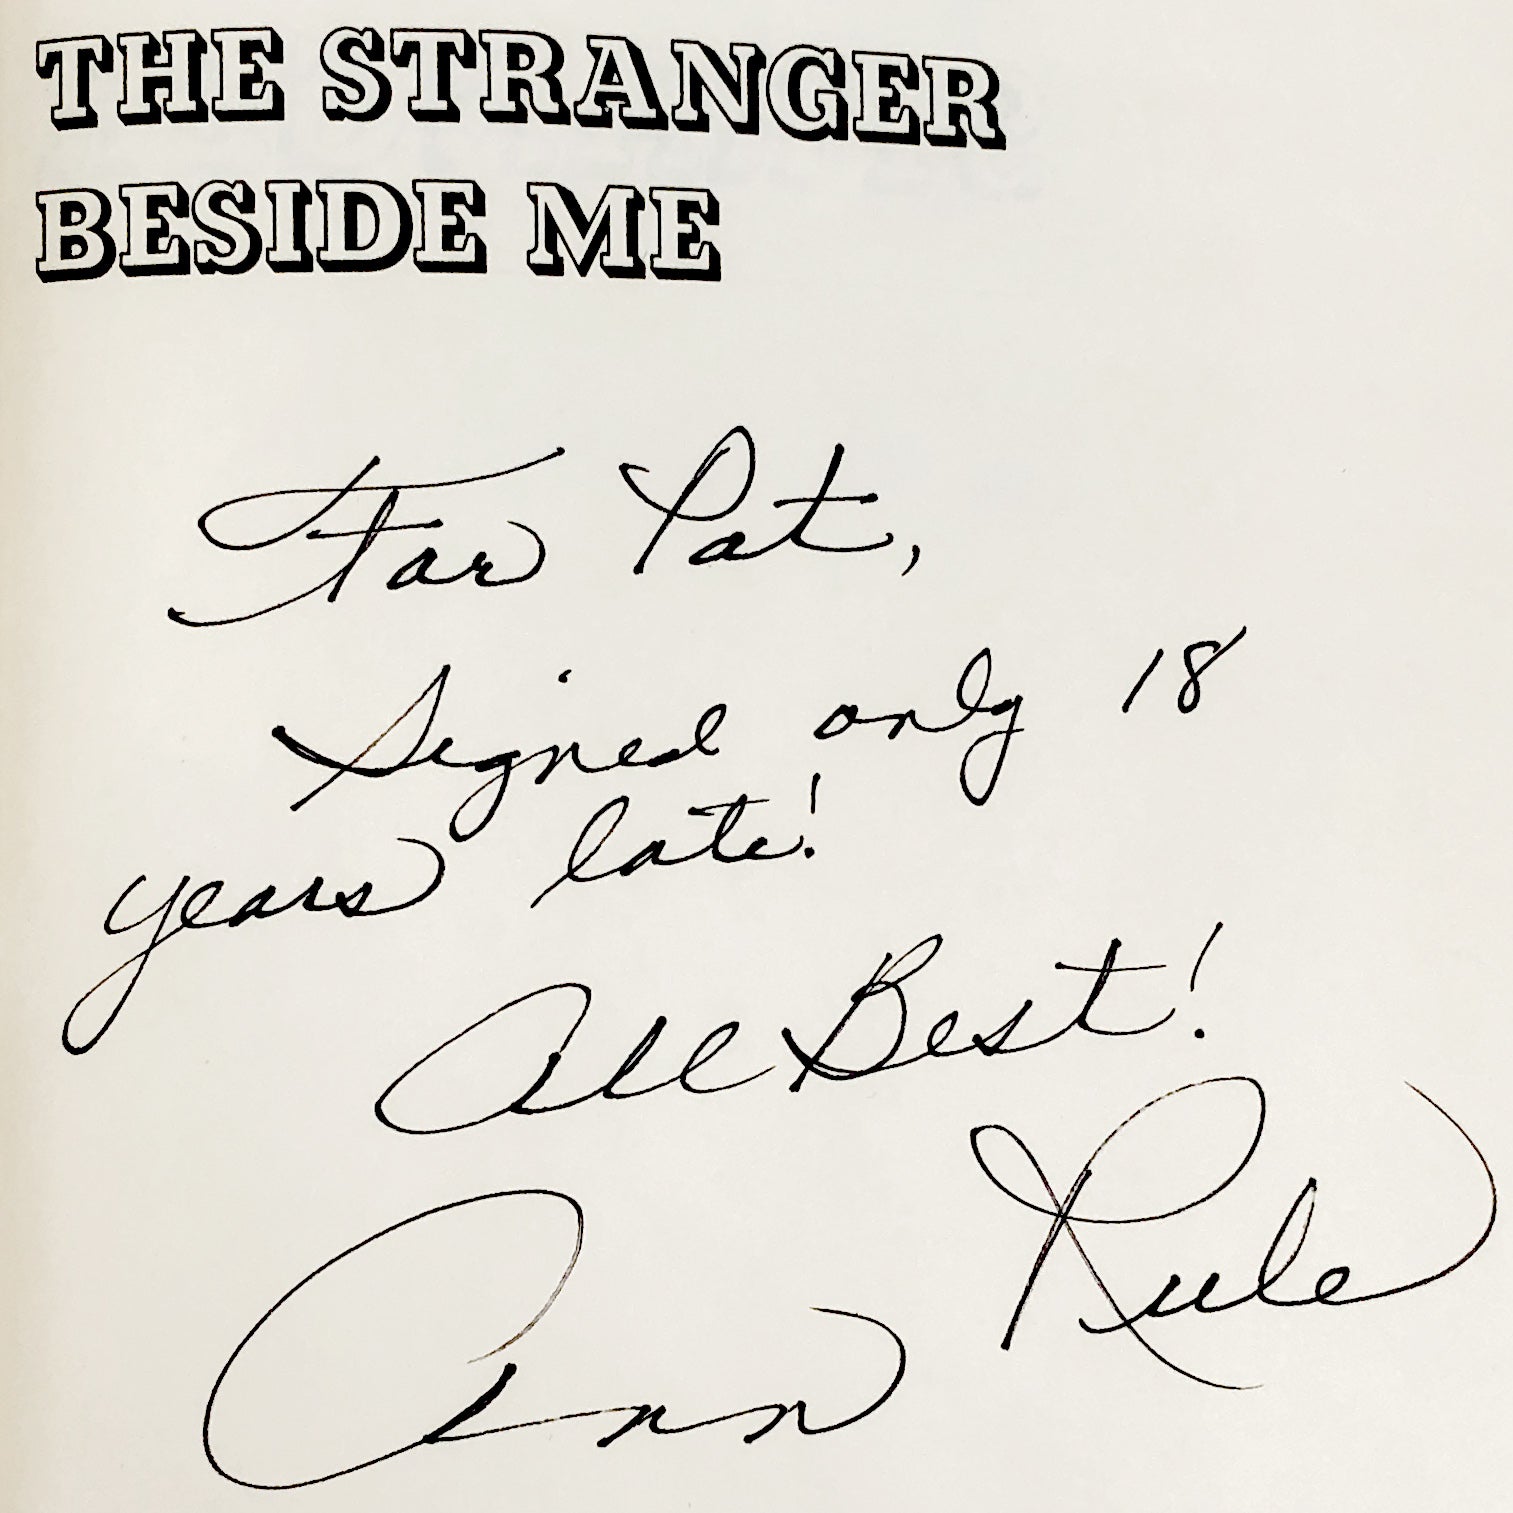 THE STRANGER
BESIDE ME
For Pat,
Signed only 18
years late!
All Best!
Ann Rule